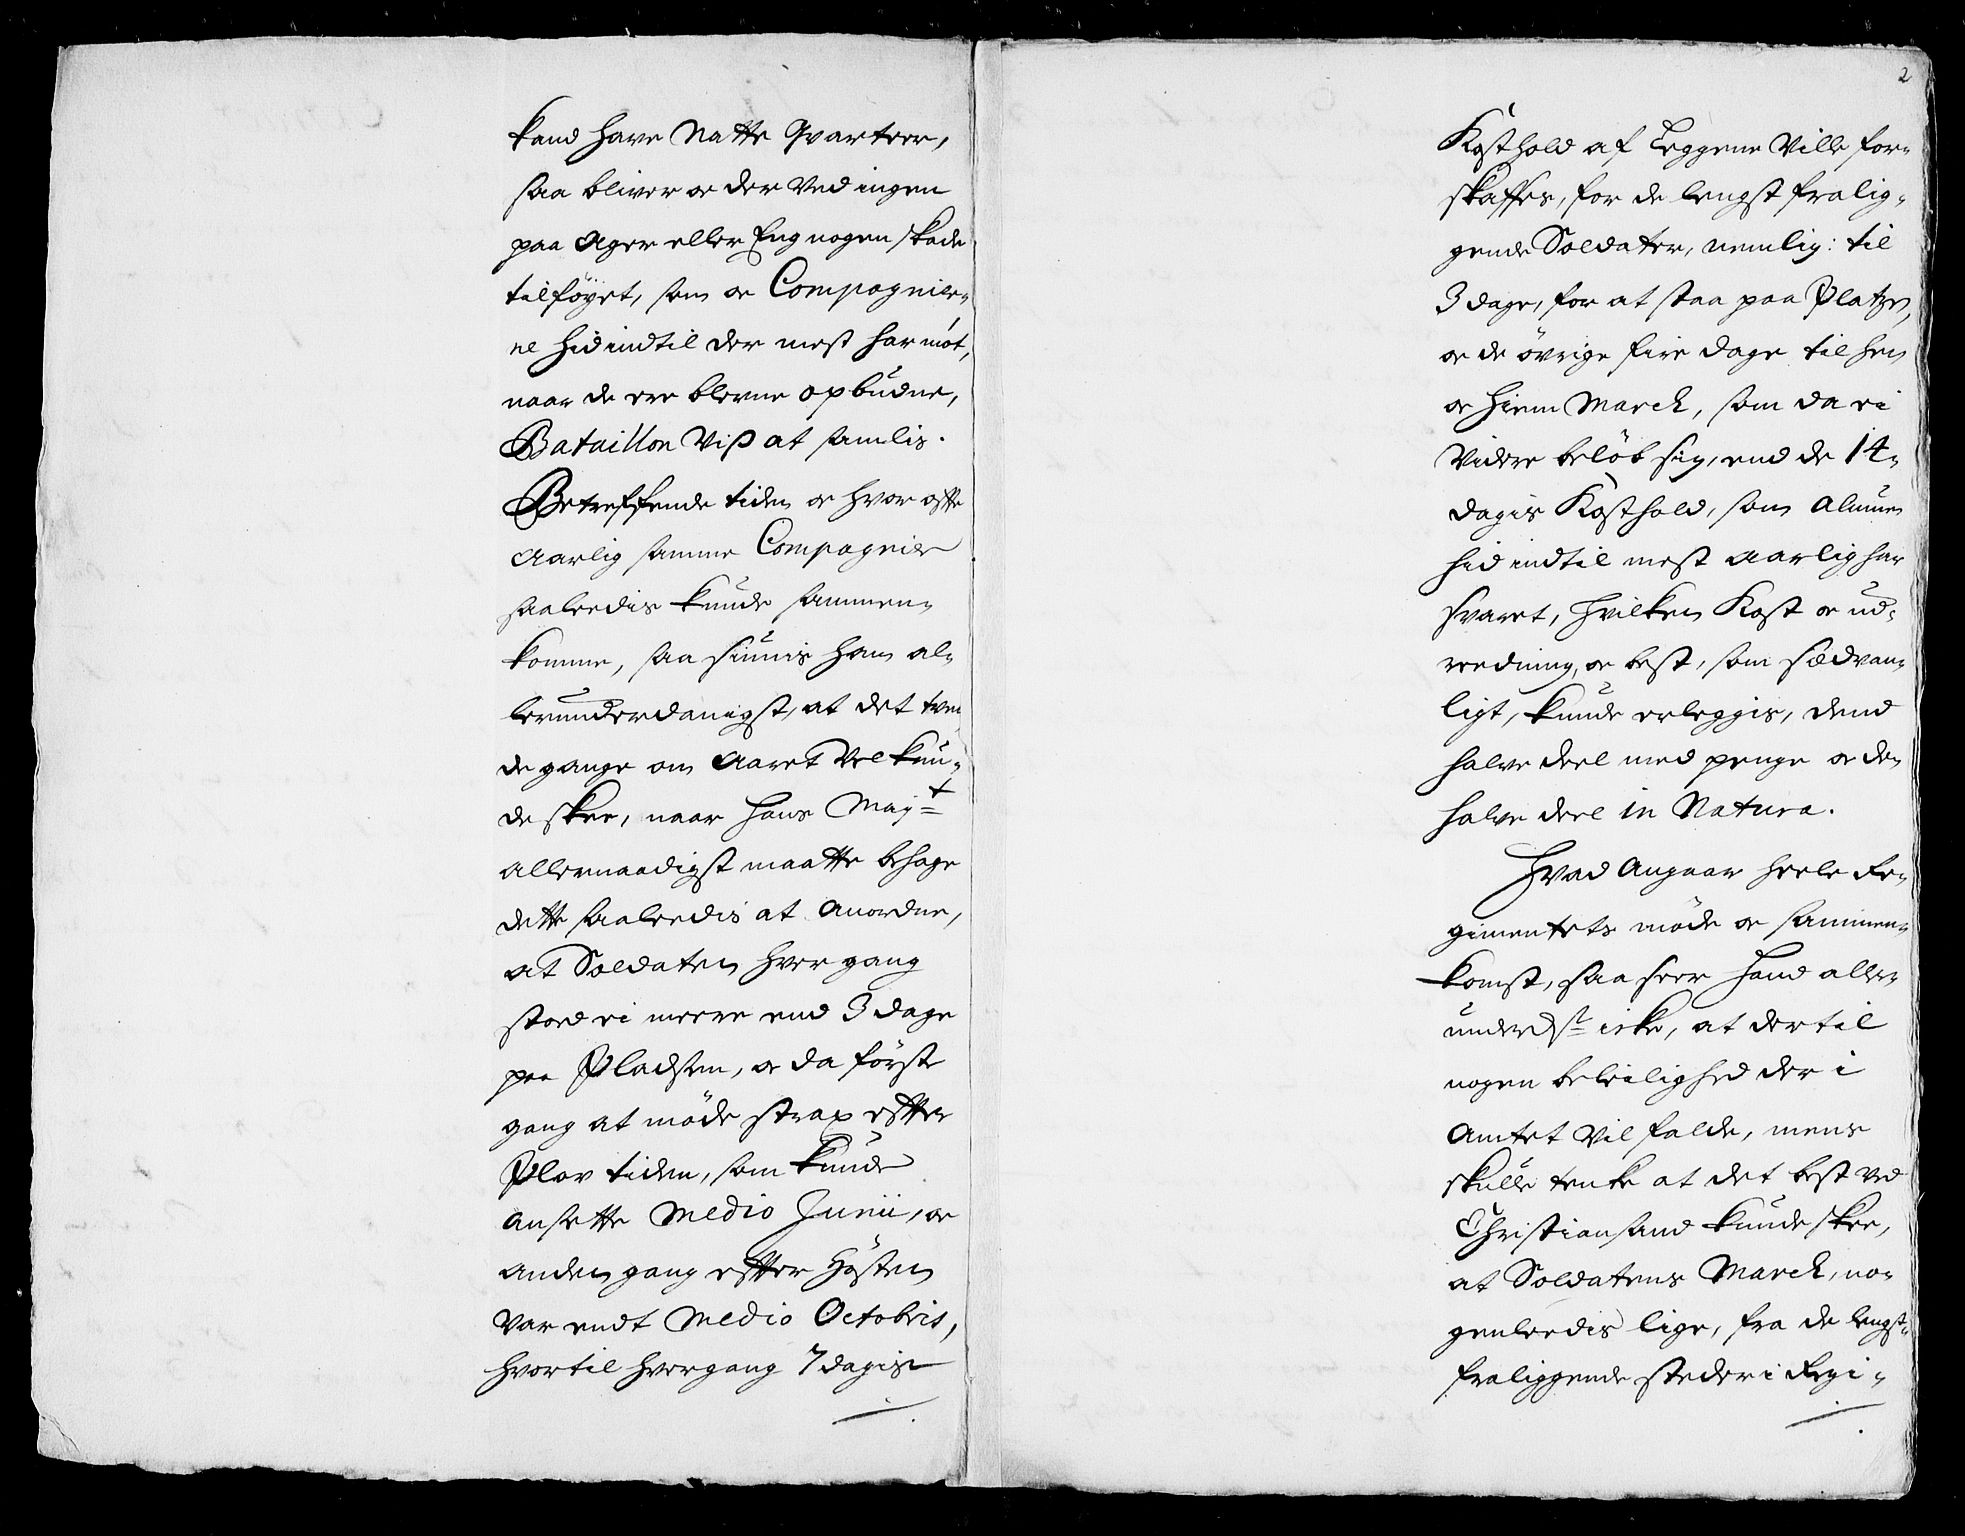 kand have Natte Qvarteer,
saa bliver oc der ved ingen
paa Ager eller Eng nogen skade
tilföyet, som oc Compagnier-
ne hid indtil der mest har möt,
naar de ere blevne opbudne,
Bataillon Viß at samlis.
Betreffende tiden oc hvor offte
Aarlig samme Compagnier
saaledis kunde sammen-
komme, saa siunis ham al-
lerunderdanigst, at det tven
de gange om Aaret vel kun-
de skee, naar Hans Mayt
allernaadigst maatte behage
dette saaledis at Anordne,
at Soldaten hver gang
stoed ei meere end 3 dage
paa Pladsen, oc da förste
gang at möde strax effter
Plov tiden, som kunde
ansette Medio Junii, oc
anden gang effter Hösten
var endt Medio Octobris,
hvortil hvergang 7 dagis
2
Kosthold af Leggene Ville for-
skaffes, for de lengst fralig-
gende Soldater, nemlig: til
3 dage, for at staa paa Platzen,
oc de övrige fire dage til hen
oc hiem March, som da ei
videre belöb sig, end de 14-
dagis Kosthold, som Almuen
hid indtil mest aarlig har
svaret, hvilken Kost oc ud-
reedning, oc best, som sædvan-
ligt, kunde erleggis, dend
halve deel med penge oc den
halve deel in Natura.
Hvad Angaar heele Re-
gimentets möde oc sammen-
komst, saa seer Hand aller-
underdst icke, at dertil
nogen beleilighed der i
Amtet vil falde, mens
skulle tenke at det best ved
Christiansand kunde skee,
at Soldatens March, no-
genleedis lige, fra de lengst-
fraliggende steder i Regi-